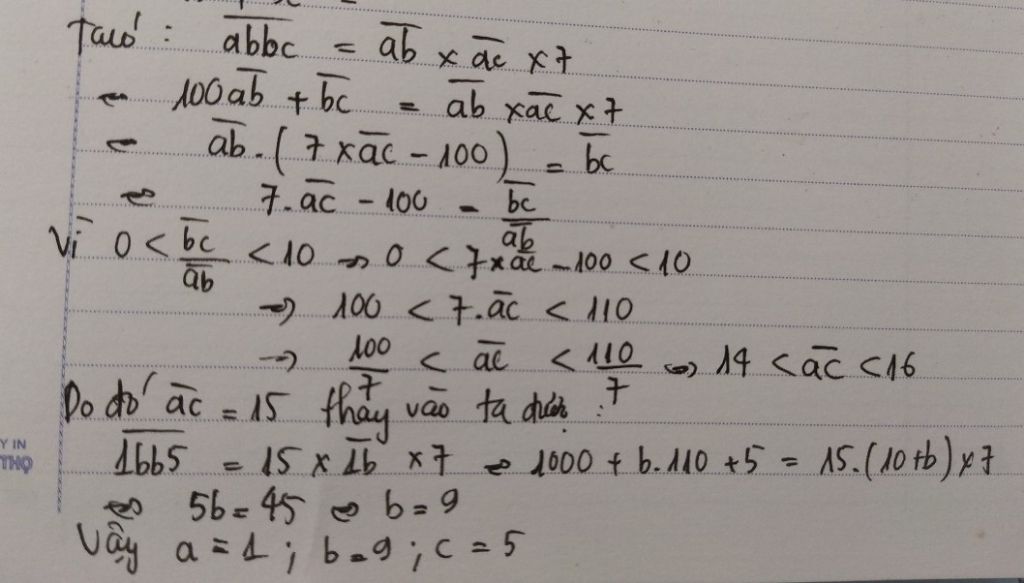 Ta có : \overline{abbc} = \overline{ab} × \overline{ac} × 7
⇔ 100\overline{ab} + \overline{bc} = \overline{ab} × \overline{ac} × 7
⇔ \overline{ab} . ( 7 × \overline{ac} - 100 ) = \overline{bc}
⇔ 7.\overline{ac} - 100 = \frac{\overline{bc}}{\overline{ab}}
Vì 0 < \frac{\overline{bc}}{\overline{ab}} < 10 ⇒ 0 < 7 × \overline{ac} - 100 < 10
⇒ 100 < 7.\overline{ac} < 110
⇒ \frac{100}{7} < \overline{ac} < \frac{110}{7} ⇔ 14 < \overline{ac} < 16
Do đó \overline{ac} = 15 thay vào ta được :
\overline{1bb5} = 15 × \overline{1b} × 7 ⇔ 1000 + b.110 + 5 = 15.(10+b) × 7
⇔ 5b = 45 ⇔ b = 9
Vậy a = 1 ; b = 9 ; c = 5
Y IN
THỌ